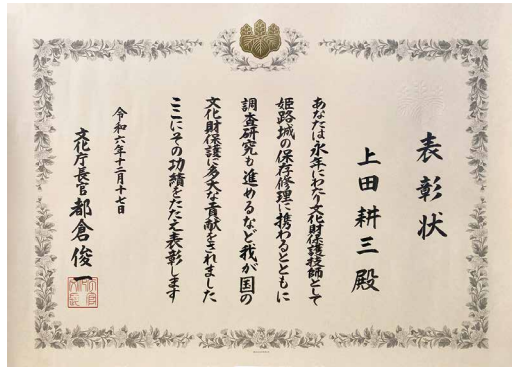 表彰状
上田耕三殿
あなたは永年にわたり文化財保護技師として
姫路城の保存修理に携わるとともに
調査研究も進めるなど我が国の
文化財保護に多大な貢献をされました
ここにその功績をたたえ表彰します
令和六年十二月十七日
文化庁長官都倉俊一